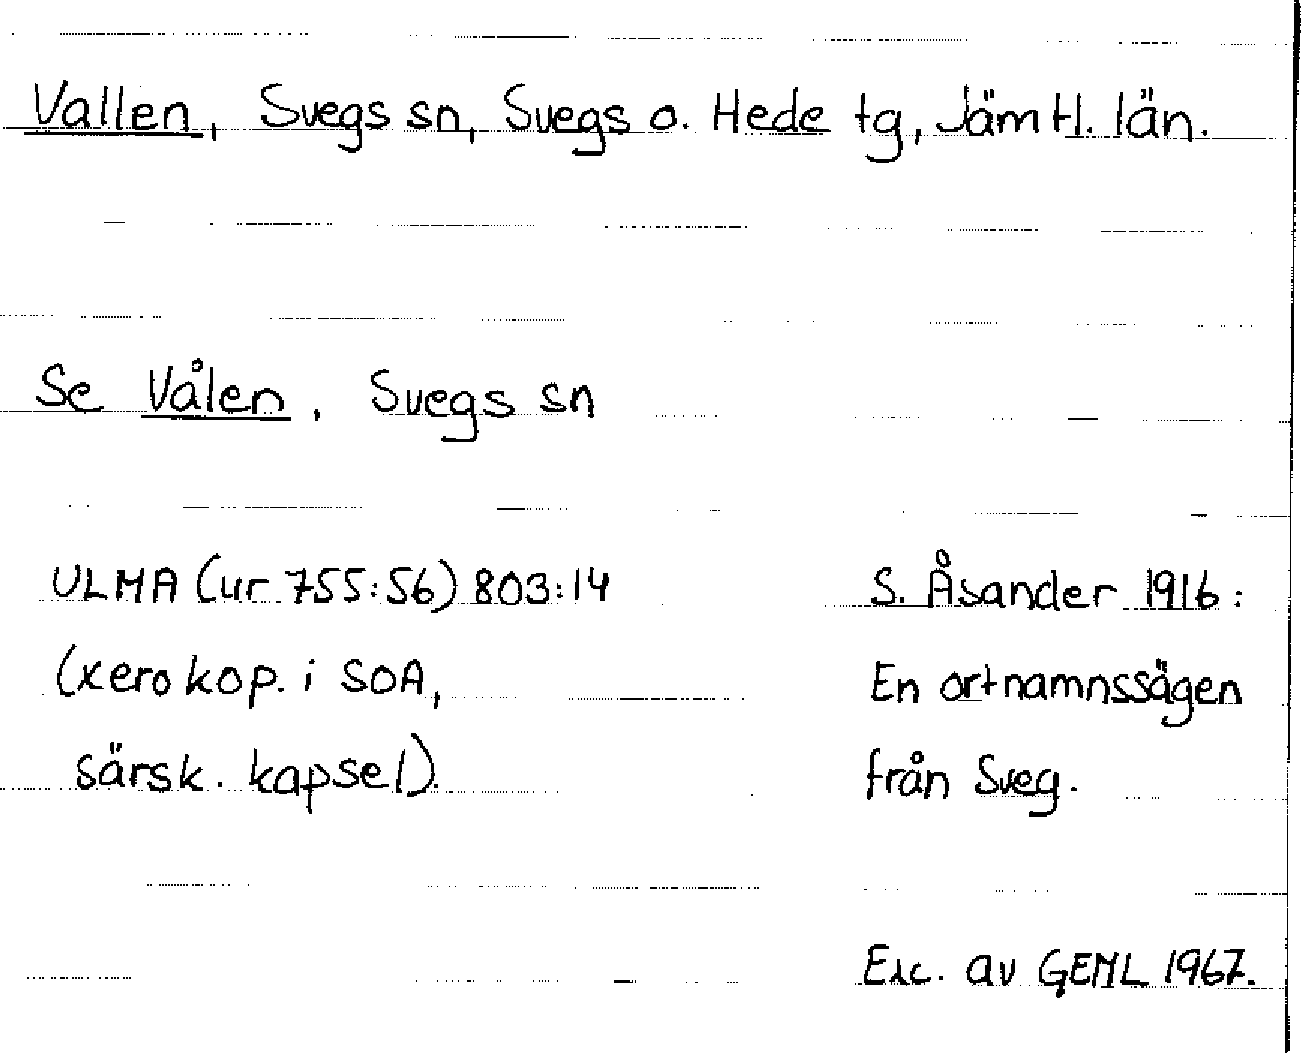 Vallen, Svegs sn, Svegs o. Hede tg, Jämtl. län.
Se Vålen, Svegs sn
ULMA (ur 755:56) 803:14
(xerokop. i SOA,
särsk. kapsel).
S. Åsander 1916:
En ortnamnssägen
från Sveg.
Exc. av GEML 1967.